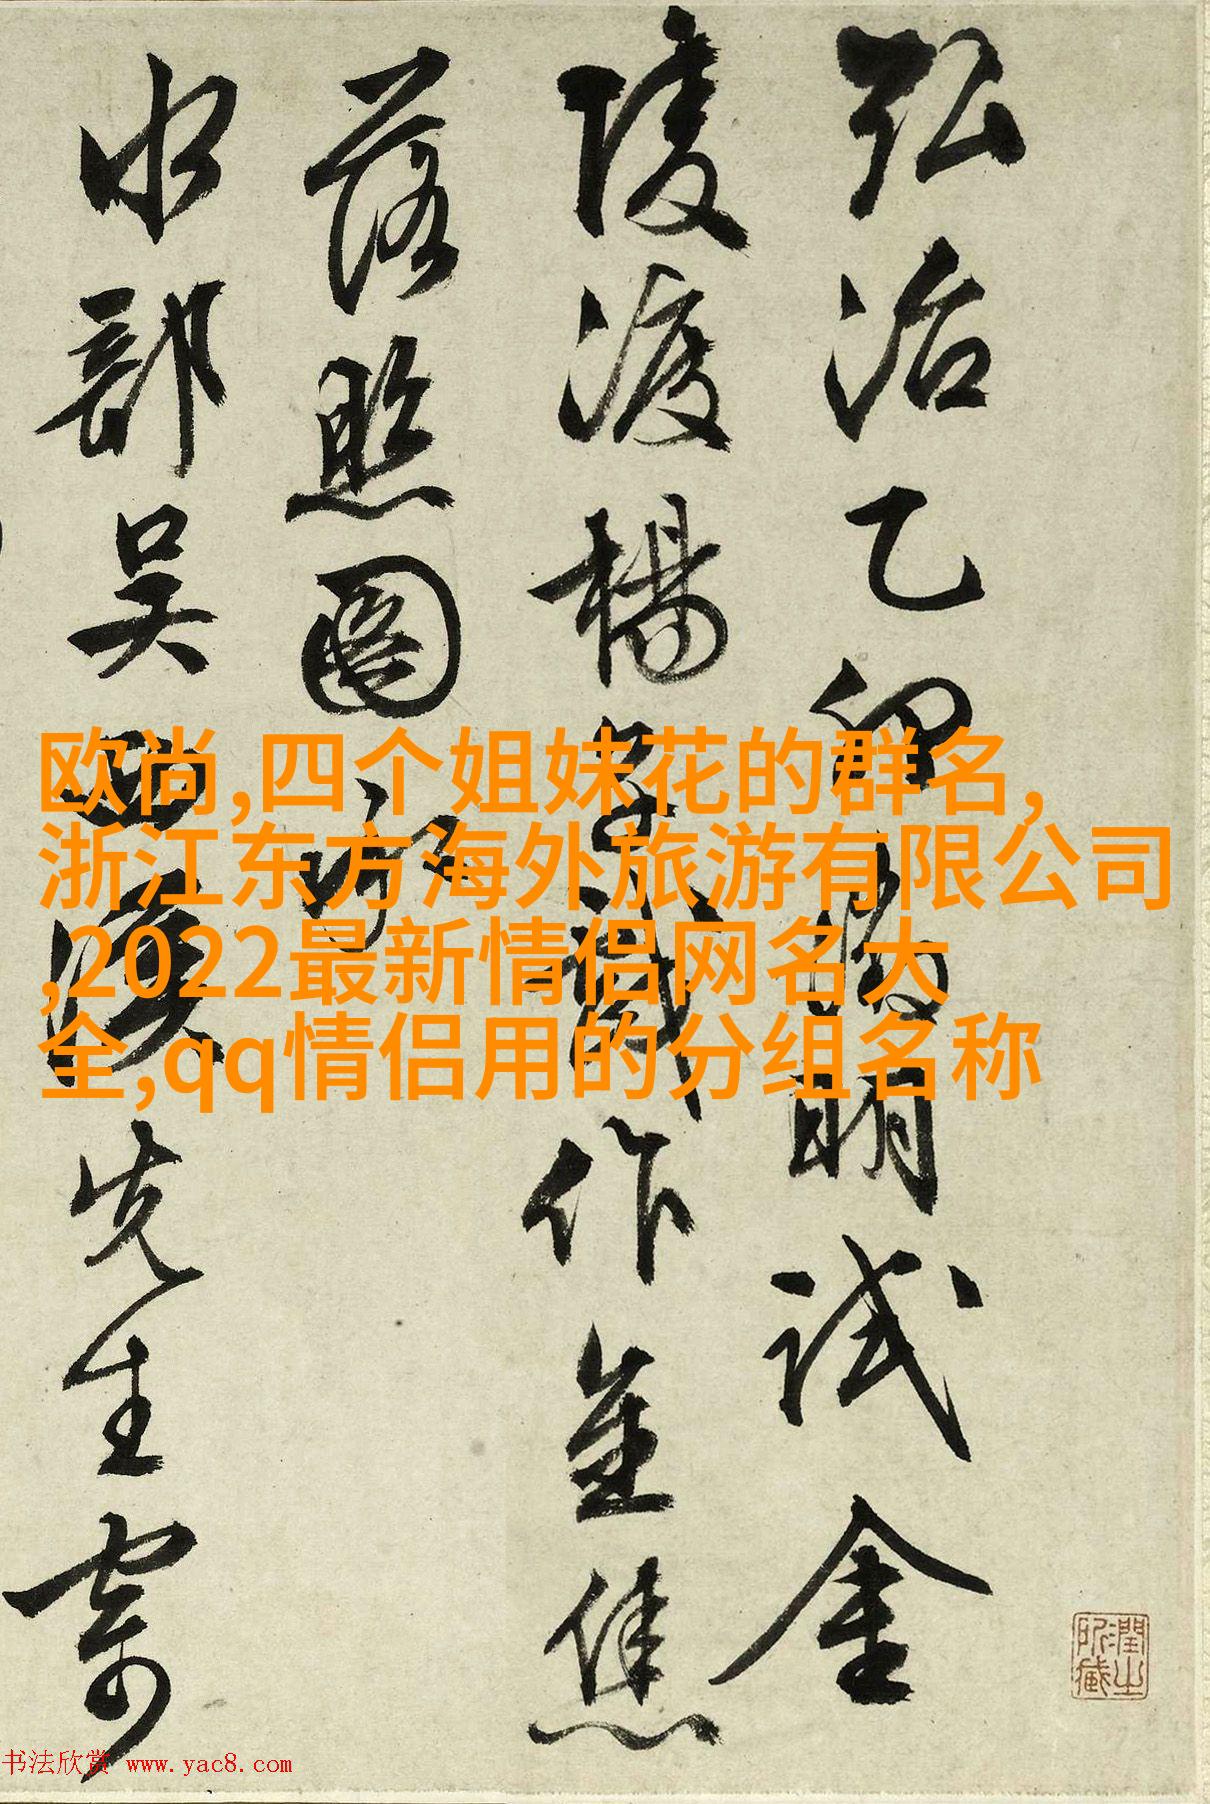 弘治乙卯徵明試金
陵渡楊子戲作金焦
落照圖
水部吳先生寄
潤之所藏
欧尚,四个姐妹花的群名,
浙江东方海外旅游有限公司
,2022最新情侣网名大
全,qq情侣用的分组名称
书法欣赏 www.yac8.com